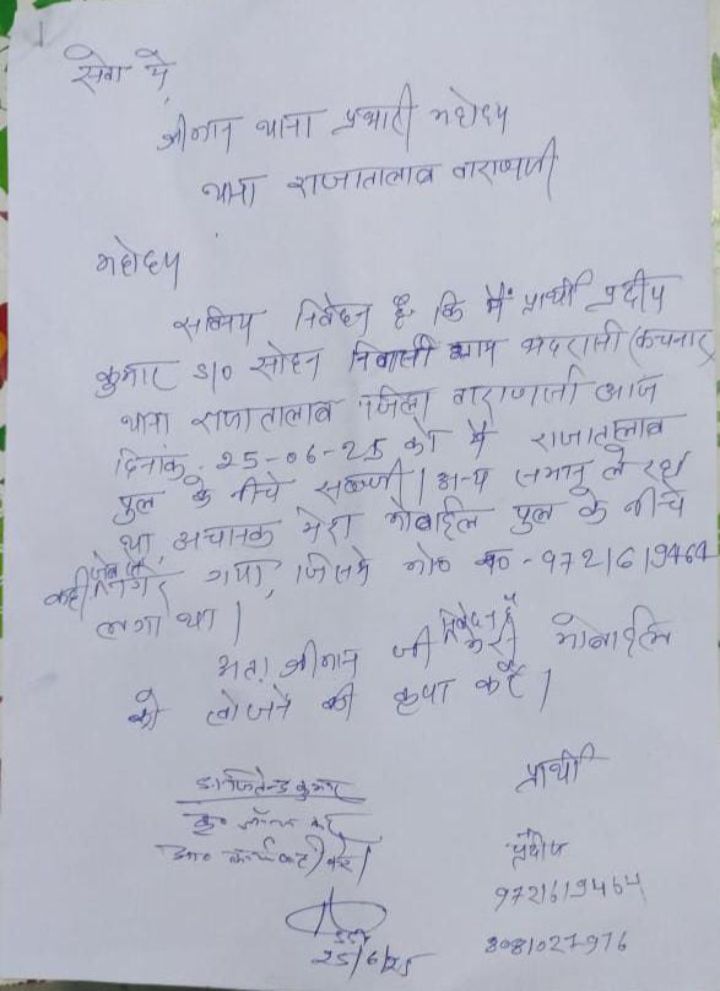 सेवा में,
श्रीमान थाना प्रभारी महोदय
थाना राजातालाब वाराणसी
महोदय
सविनय निवेदन है कि मैं प्रार्थी प्रदीप
कुमार S/o सोहन निवासी ग्राम भदरासी (कचनार)
थाना राजातालाब जिला वाराणसी आज
दिनांक - 25-06-25 को मैं राजातालाब
पुल के नीचे सब्जी / अन्य समान ले रहा
था, अचानक मेरा मोबाईल पुल के नीचे
कही जेब से गिर गया, जिसमे मो० न० - 9721619464
लगा था।
अतः श्रीमान जी निवेदन है मेरी मोबाईल
को खोजने की कृपा करें।
प्रार्थी
प्रदीप
9721619464
8081027976
जितेन्द्र कुमार
25/6/25